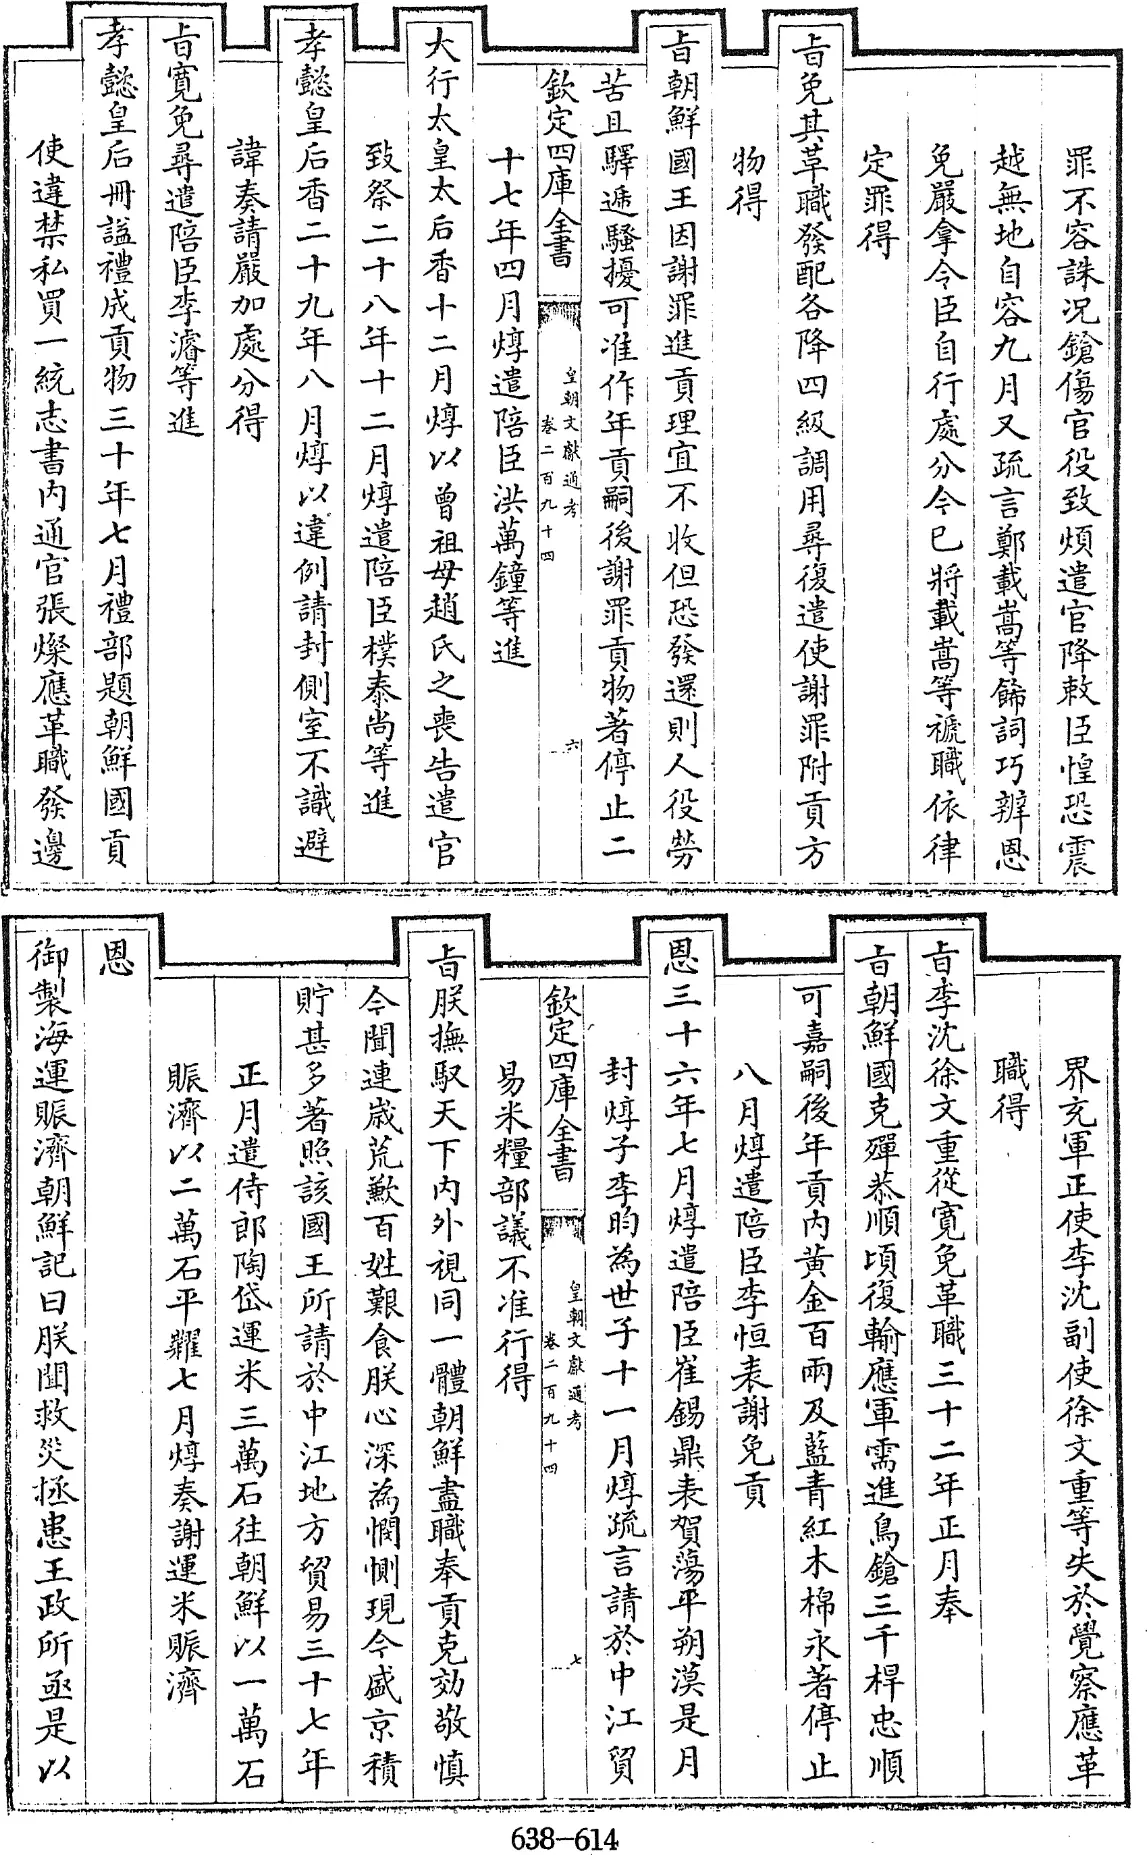 罪不容誅况鎗傷官役致煩遣官降敕臣惶恐震
越無地自容九月又疏言鄭載嵩等飾詞巧辨恩
免嚴拿令臣自行處分今已將載嵩等褫職依律
定罪得
㫖免其革職發配各降四級調用尋復遣使謝罪附貢方
物得
㫖朝鮮國王因謝罪進貢理宜不收但恐發還則人役勞
苦且驛遞騷擾可准作年貢嗣後謝罪貢物著停止二
欽定四庫全書
皇朝文獻通考
卷二百九十四
六
十七年四月焞遣陪臣洪萬鐘等進
大行太皇太后香十二月焞以曾祖母趙氏之喪告遣官
致祭二十八年十二月焞遣陪臣樸泰尚等進
孝懿皇后香二十九年八月焞以違例請封側室不識避
諱奏請嚴加處分得
㫖寛免尋遣陪臣李濬等進
孝懿皇后冊諡禮成貢物三十年七月禮部題朝鮮國貢
使違禁私買一統志書内通官張燦應革職發邊
界充軍正使李沈副使徐文重等失於覺察應革
職得
㫖李沈徐文重從寛免革職三十二年正月奉
㫖朝鮮國克殫恭順頃復輸應軍需進鳥鎗三千桿忠順
可嘉嗣後年貢内黄金百兩及藍青紅木棉永著停止
八月焞遣陪臣李恒表謝免貢
恩三十六年七月焞遣陪臣崔錫鼎表賀蕩平朔漠是月
封焞子李昀為世子十一月焞疏言請於中江貿
欽定四庫全書
皇朝文獻通考
卷二百九十四
七
易米糧部議不准行得
㫖朕撫馭天下内外視同一體朝鮮盡職奉貢克効敬慎
今聞連歲荒歉百姓艱食朕心深為憫惻現今盛京積
貯甚多著照該國王所請於中江地方貿易三十七年
正月遣侍郎陶岱運米三萬石往朝鮮以一萬石
賑濟以二萬石平糶七月焞奏謝運米賑濟
恩
御製海運賑濟朝鮮記曰朕聞救災拯患王政所亟是以
638-614